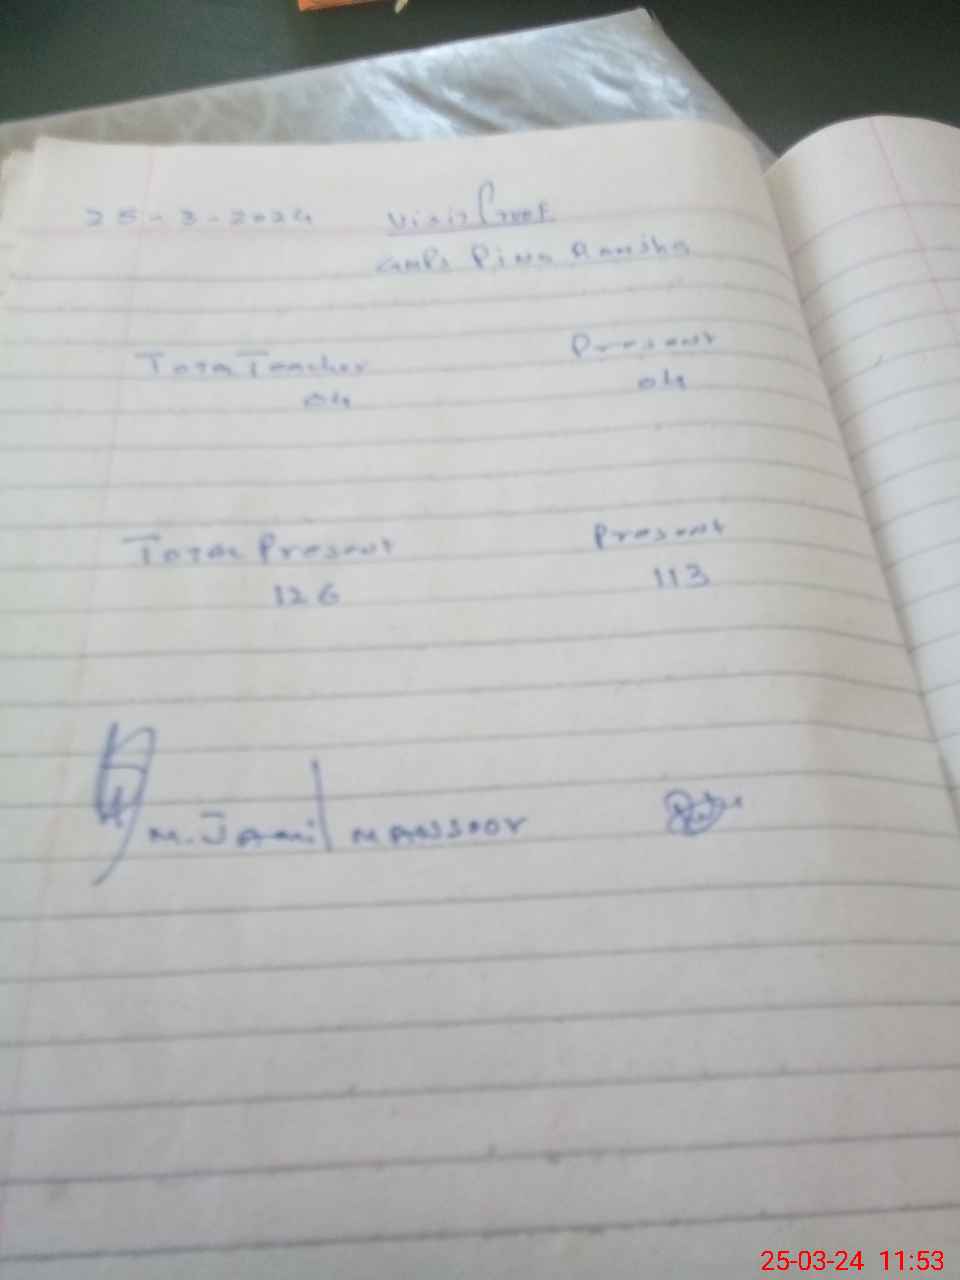 25-3-2024 Visit Proof
GMPS Pind Ranjha
Total Teacher Present
04 04
Total Present Present
126 113
M. Jamil Manssoor
25-03-24 11:53